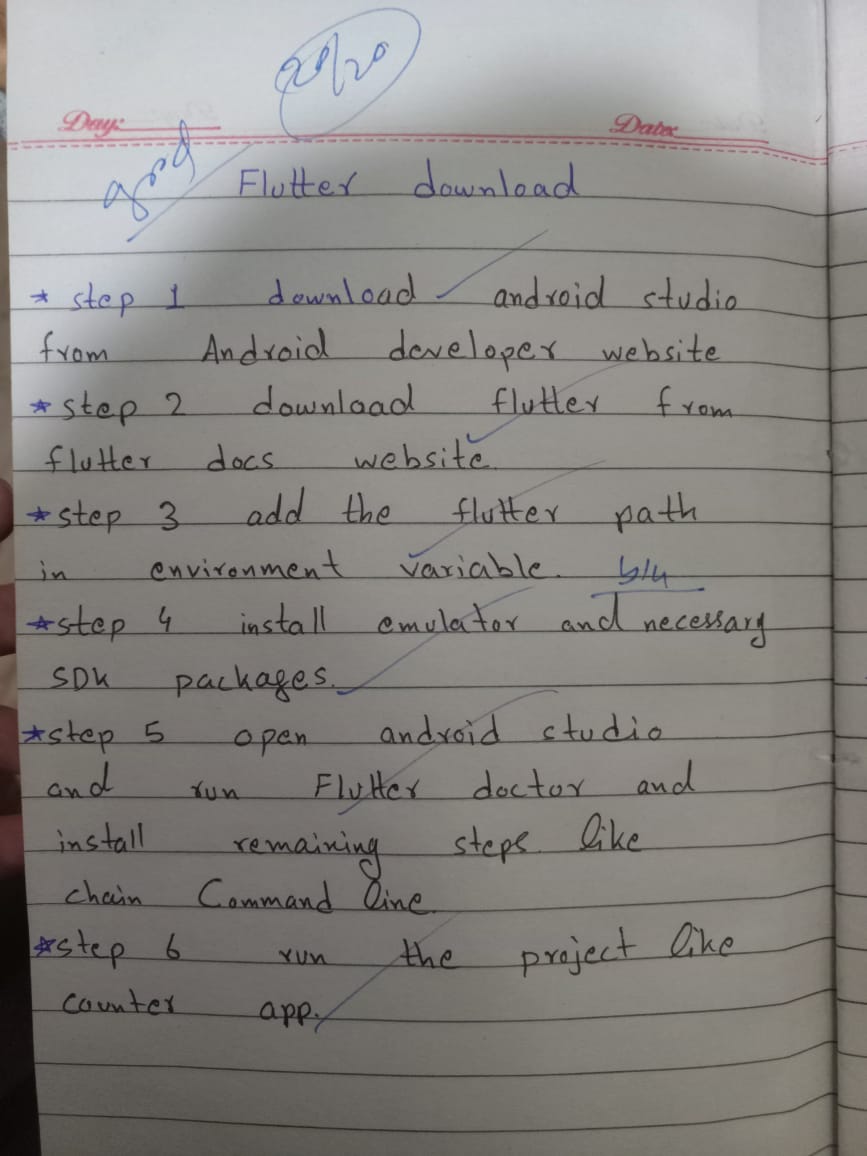 20/20
Day:
Date:
good
Flutter download
* step 1 download android studio
from Android developer website
* step 2 download flutter from
flutter docs website.
* step 3 add the flutter path
in environment variable.
* step 4 install emulator and necessary
SDK packages.
* step 5 open android studio
and run Flutter doctor and
install remaining steps like
chain Command line.
* step 6 run the project like
counter app.